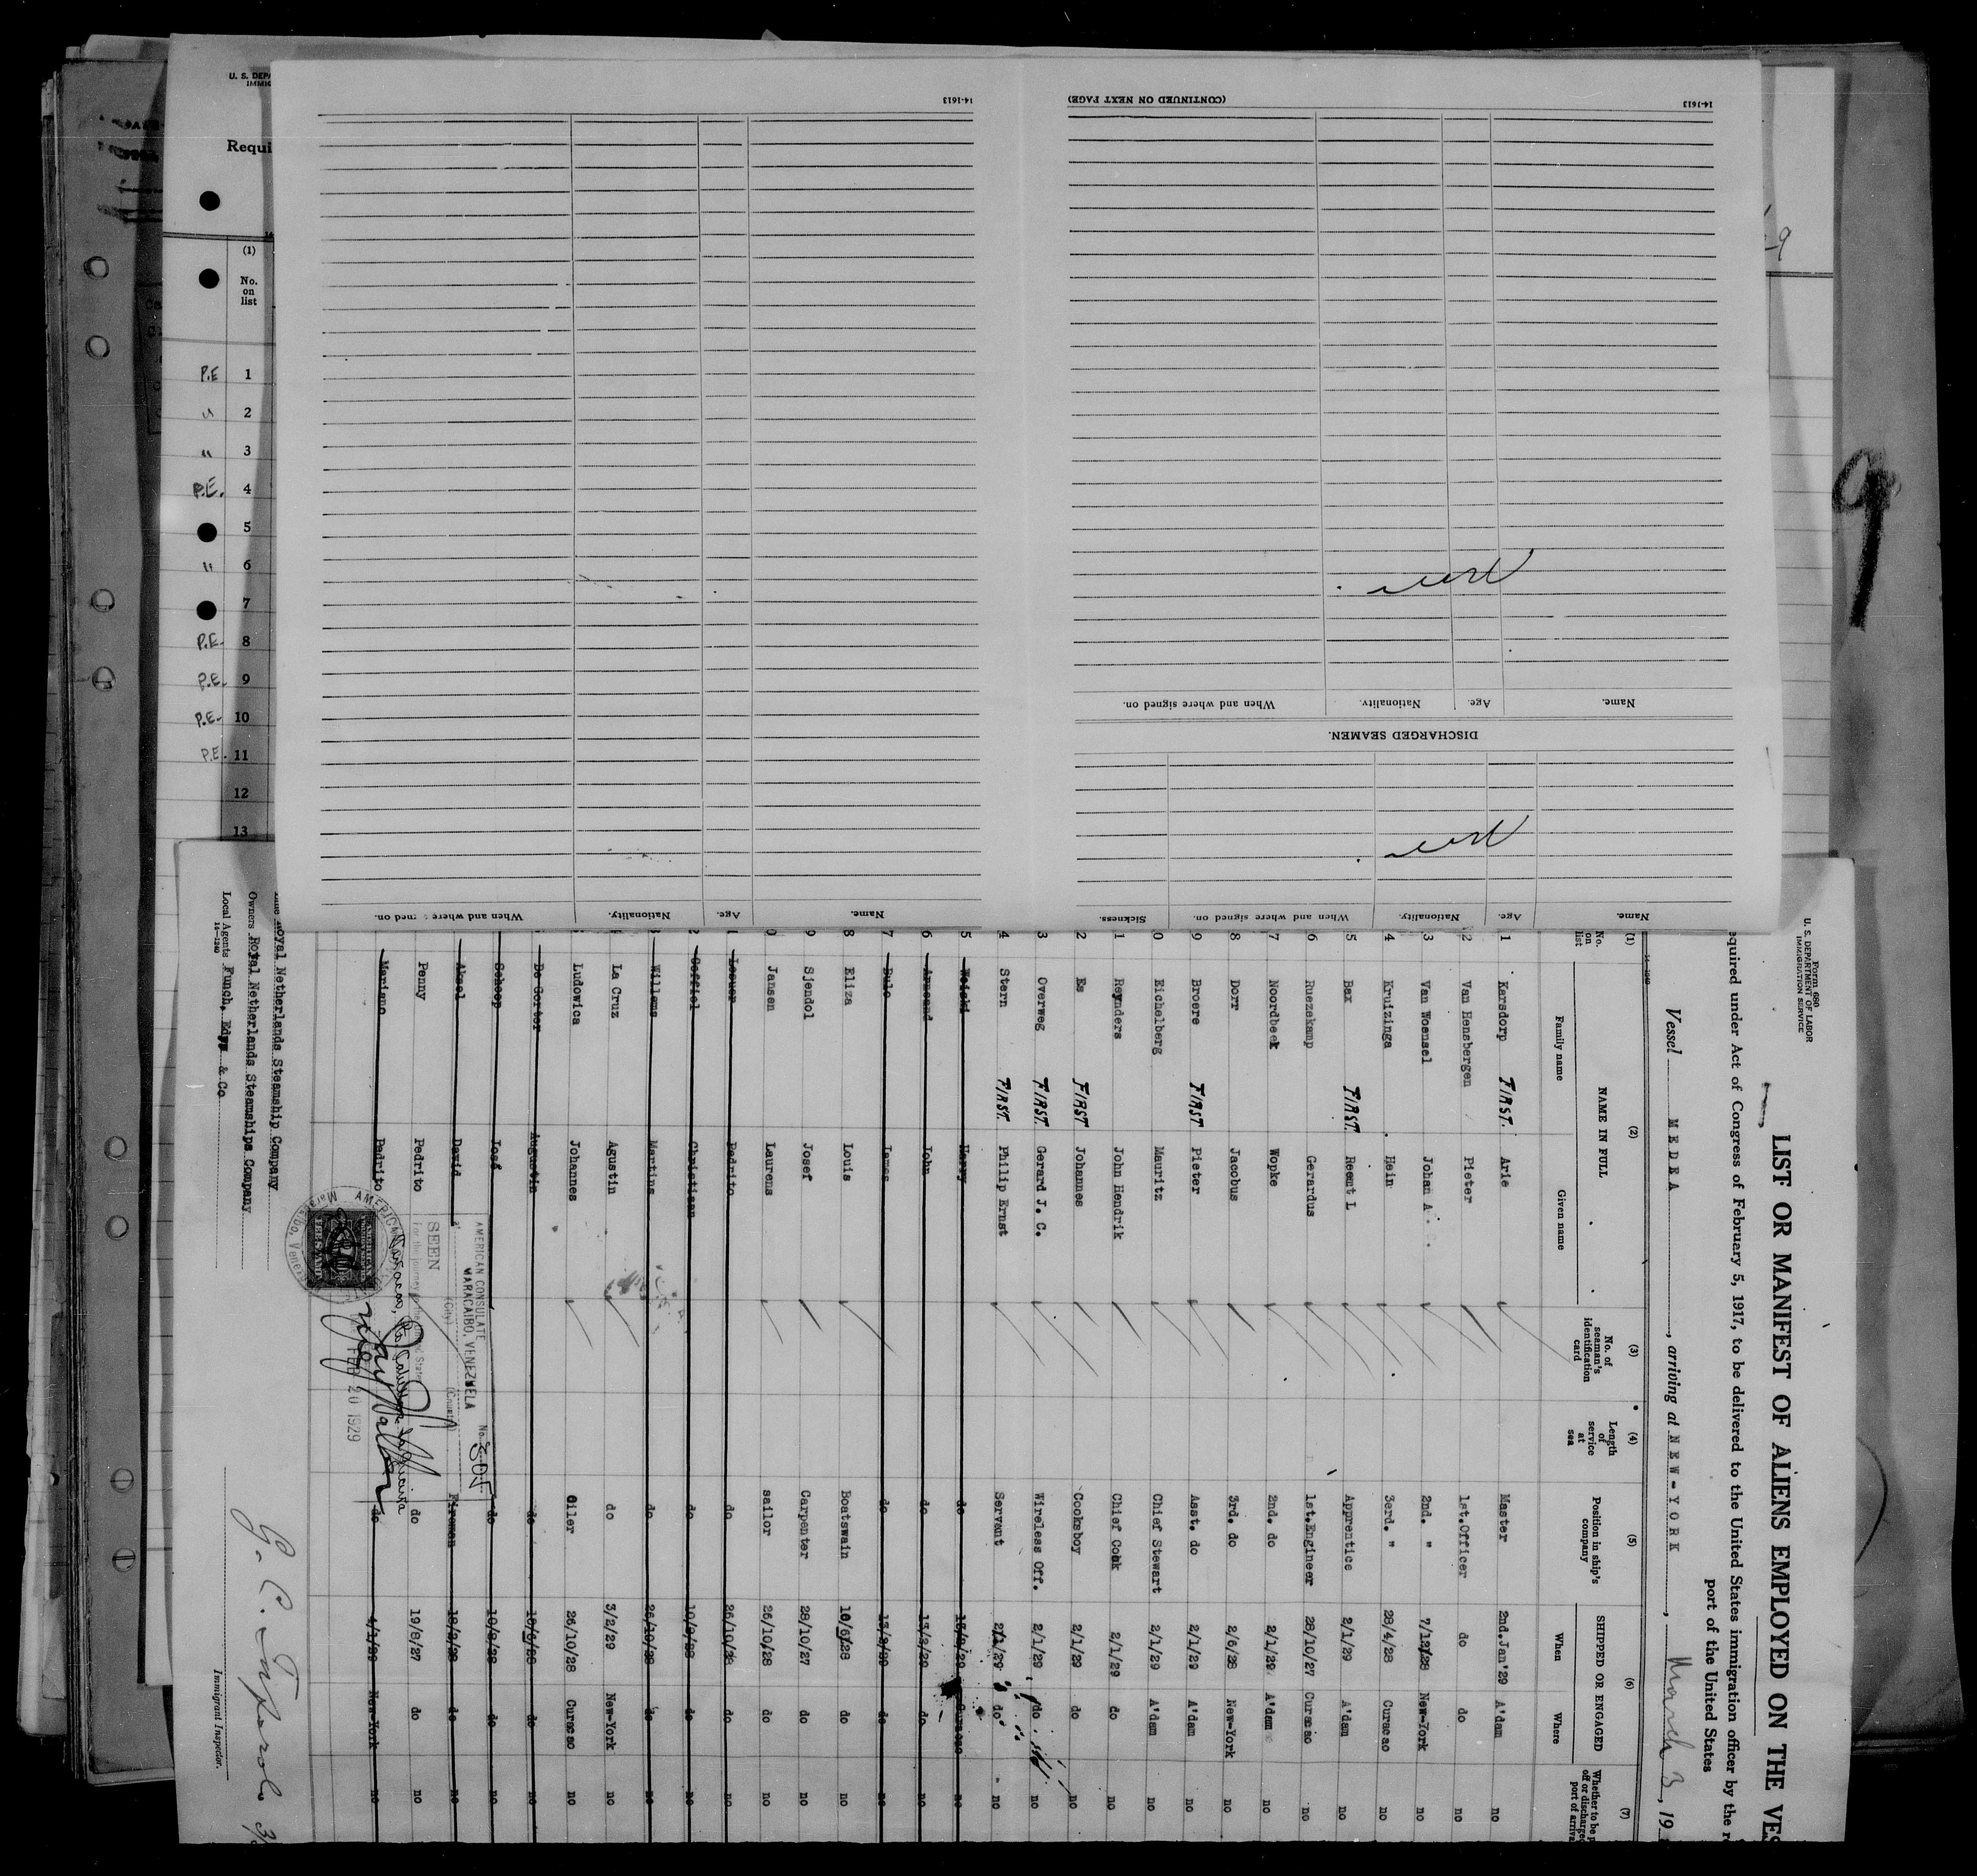 U. S. DEPA
IMMIG
Requi
(1)
No.
on
list
P.E 1
" 2
" 3
P.E. 4
5
" 6
7
P.E. 8
P.E. 9
P.E. 10
P.E. 11
12
13
14-1613
(CONTINUED ON NEXT PAGE)
14-1613
Name. Age. Nationality. When and where signed on.
DISCHARGED SEAMEN.
Name. Age. Nationality. When and where signed on. Sickness.
Name. Age. Nationality. When and where
9
Form 680
U. S. DEPARTMENT OF LABOR
IMMIGRATION SERVICE
LIST OR MANIFEST OF ALIENS EMPLOYED ON THE VES
equired under Act of Congress of February 5, 1917, to be delivered to the United States immigration officer by the r
port of the United States
Vessel MEDEA, arriving at NEW-YORK, March 3, 19
(1) (2) (3) (4) (5) (6) (7)
No. on list NAME IN FULL No. of seaman's identification card Length of service at sea Position in ship's company SHIPPED OR ENGAGED Whether to be p off or discharged port of arriva
Family name Given name When Where
1 Karsdorp FIRST. Arie Master 2nd.Jan'29 A'dam no
2 Van Hensbergen Pieter 1st.Officer do do no
3 Van Woensel Johan A 2nd. " 7/12/28 New-York no
4 Kruizinga Hein 3erd. " 28/4/28 Curacao no
5 Bax FIRST. Reent L Apprentice 2/1/29 A'dam no
6 Ruezekamp Gerardus 1st.Engineer 28/10/27 Curacao no
7 Noordbeek Wopke 2nd. do 2/1/29 A'dam no
8 Dorr Jacobus 3rd. do 2/6/28 New-York no
9 Broere FIRST Pieter Asst. do 2/1/29 A'dam no
0 Eichelberg Mauritz Chief Stewart 2/1/29 A'dam no
1 Reynders John Hendrik Chief Cook 2/1/29 do no
2 Es FIRST Johannes Cooksboy 2/1/29 do no
3 Overweg FIRST. Gerard J. C. Wireless Off. 2/1/29 do no
4 Stern FIRST. Philip Ernst Servant 2/1/29 do no
5 Harry do Curacao no
6 John do 13/2/29 do no
7 James do do no
8 Eliza Louis Boatswain 10/5/28 do no
9 Sjendol Josef Carpenter 28/10/27 do no
0 Jansen Laurens sailor 26/10/28 do no
1 Lesuer Pedrito do 26/10/28 do no
2 Christiaan do do no
3 Willems Martins do 26/10/28 do no
La Cruz Agustin do 3/2/29 New-York no
Ludowica Johannes Oiler 26/10/28 Curacao no
De Gorter Augustin do do no
Schoop José do do no
David Fireman do no
Penny Pedrito do 19/8/27 do no
Mariano Pedrito do New-York no
AMERICAN CONSULATE
MARACAIBO, VENEZUELA
SEEN No. 305
For the journey to the United States
(City) (Country)
FEB 20 1929
AMERICAN
Maracaibo, Venezuela
Line Royal Netherlands Steamship Company
Owners Royal Netherlands Steamships Company
Local Agents Funch, Edye & Co
14-1240
Immigrant Inspector.